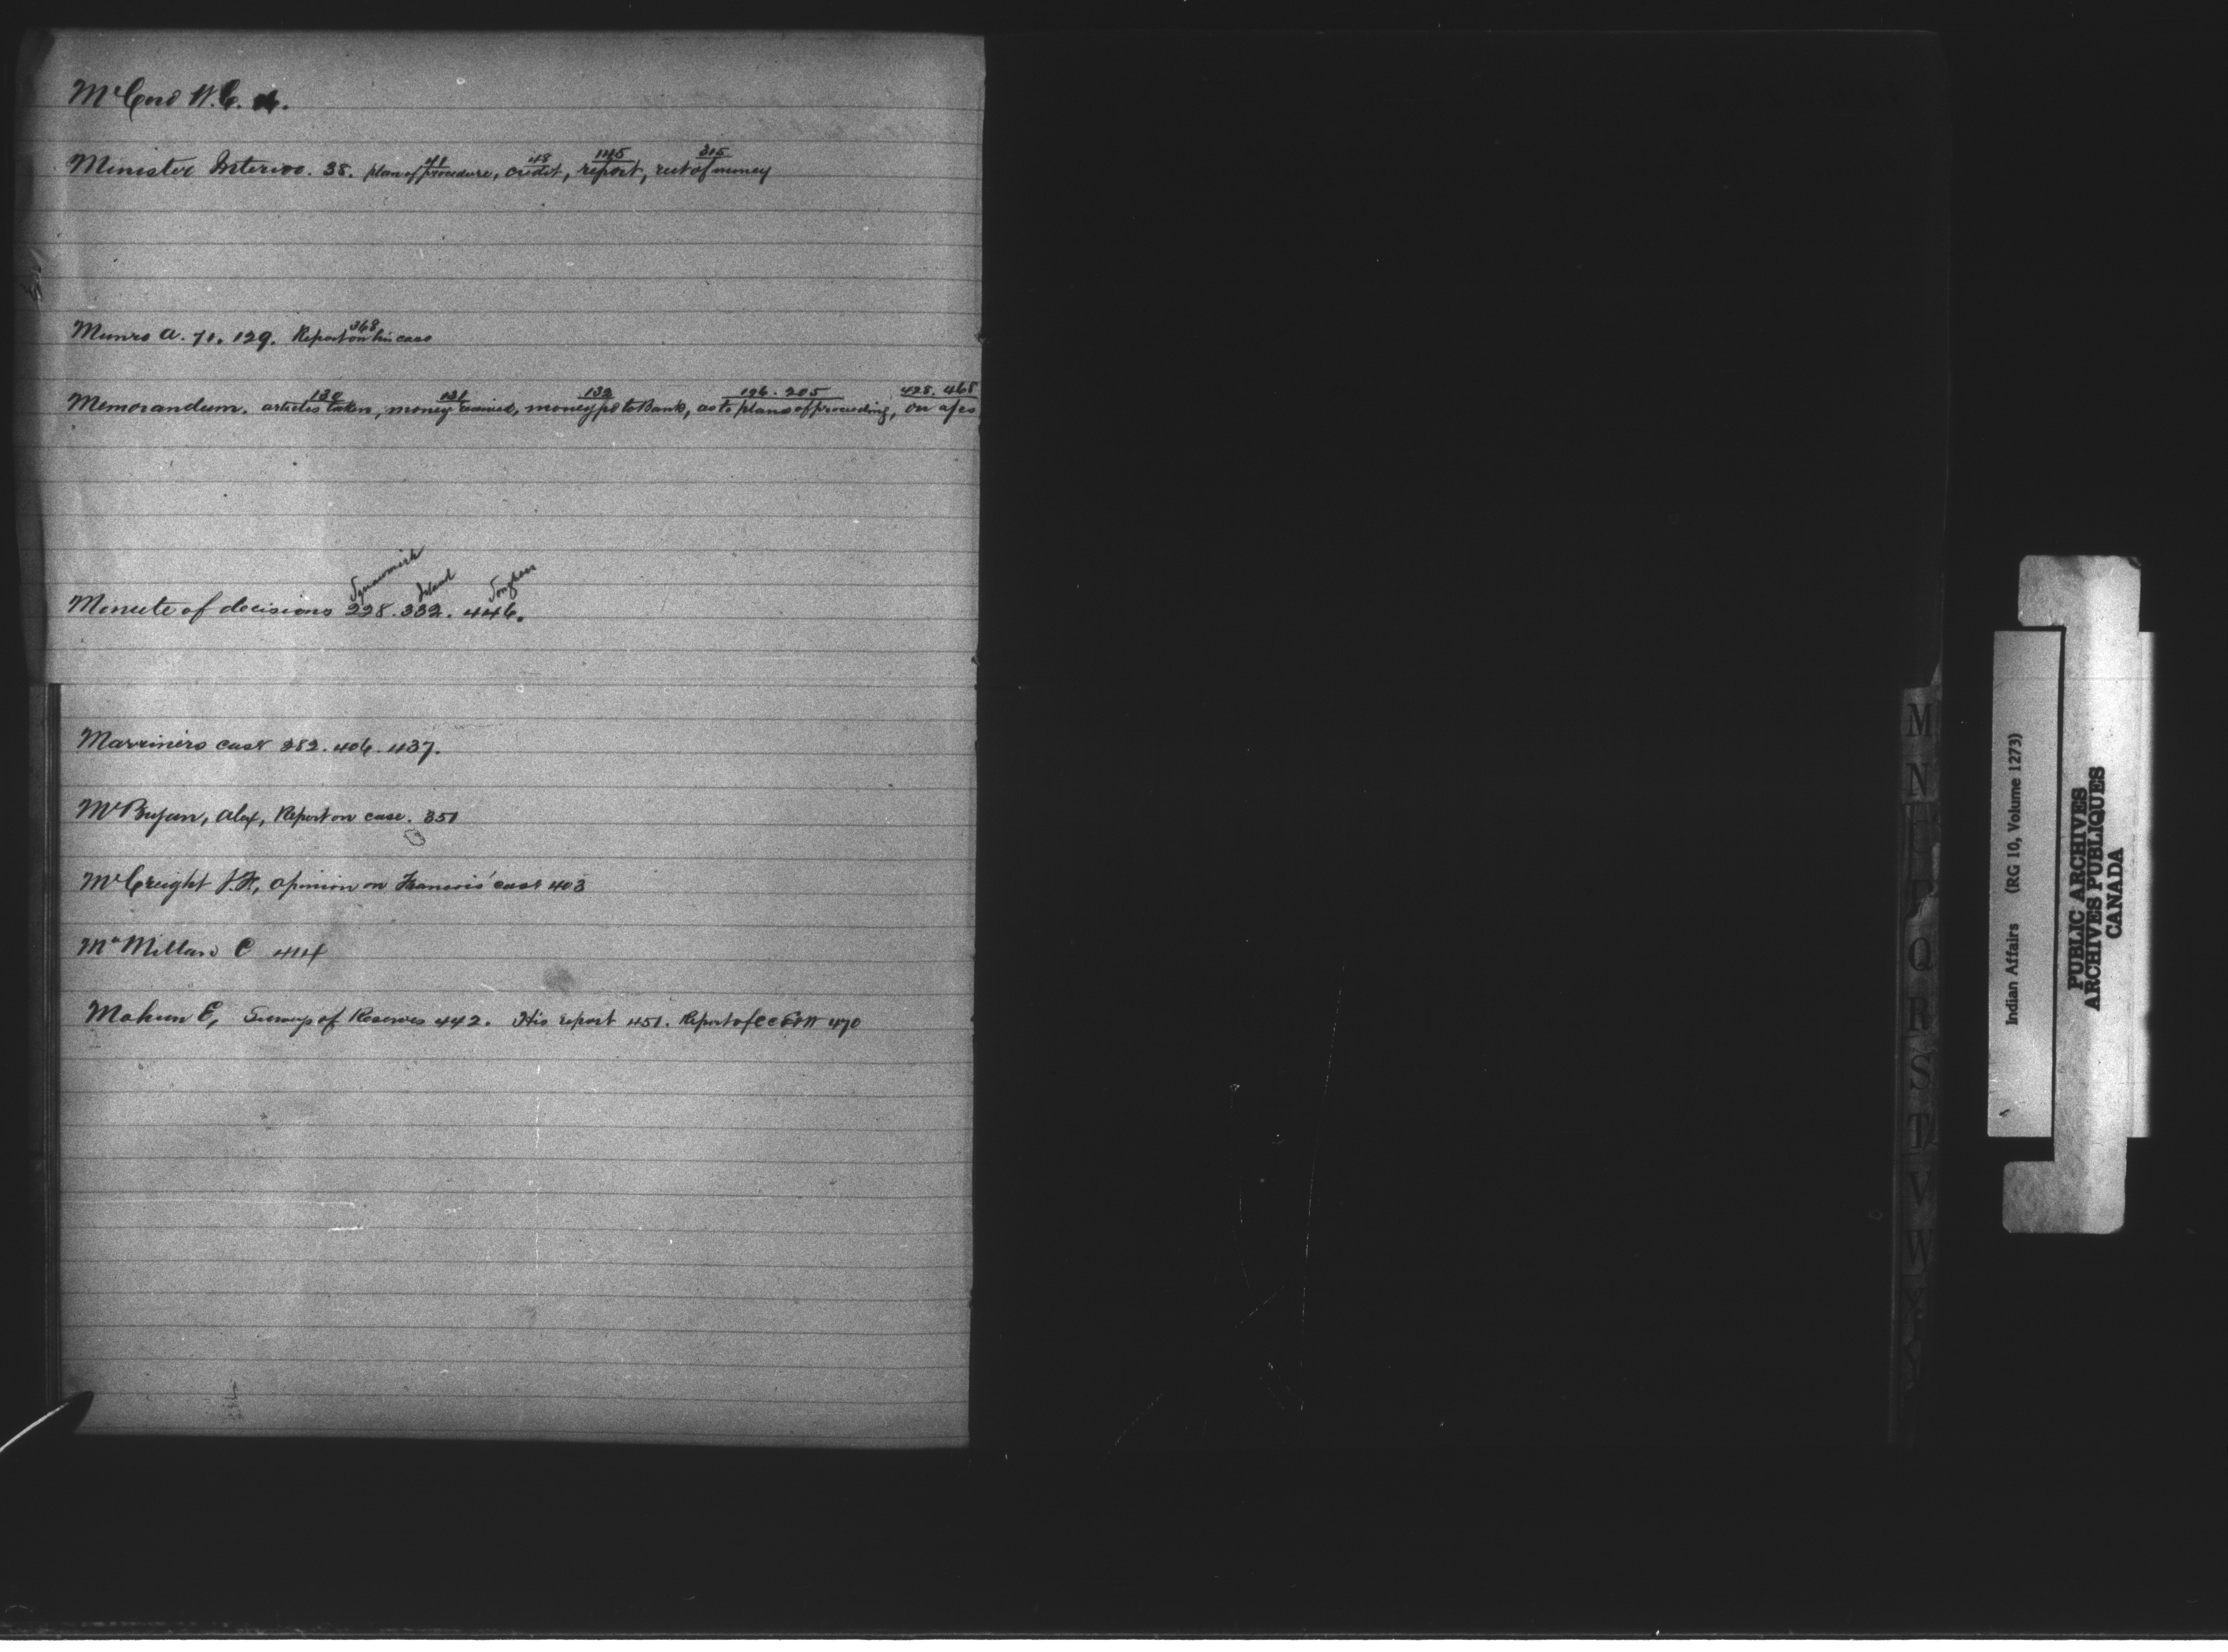 McCord W.C.
41 48 1145 315
Minister Interior. 38. plan of procedure, credit, report, rect of money
368
Munro A. 71. 129. Report on his case
130 131 132 196. 205 428. 468
Memorandum. articles taken, money received, money pd to Bank, as to plans of proceeding, on a/cs
Squawmish Songhees
Minute of decisions 228. 332. 446.
Marriners case 282. 406. 437.
Alex, Report on case. 351
McCreight J.F., opinion on Francois' case 403
McMillan C 414
Mahun E, Survey of Reserves 442. His report 451. Report of 470
M
N
P
Q
R
S
T
V
W
Y
Indian Affairs (RG 10, Volume 1273)
PUBLIC ARCHIVES
ARCHIVES PUBLIQUES
CANADA